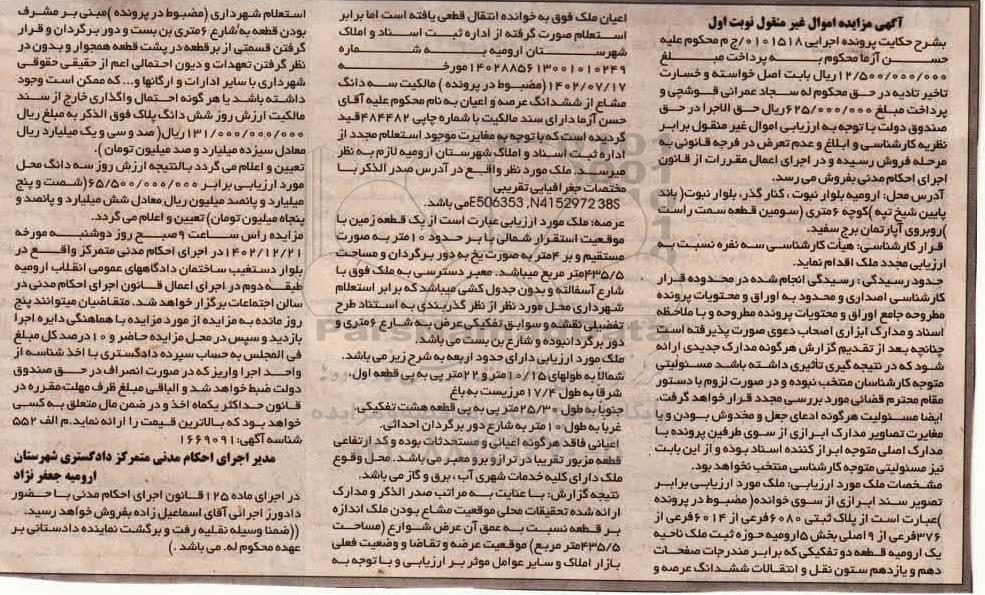 آگهی مزایده اموال غیر منقول نوبت اول
بشرح حکایت پرونده اجرایی ۰۱۰۱۵۱۸/ج م محکوم علیه
حسن آزما محکوم به پرداخت مبلغ
۱۲/۵۰۰/۰۰۰/۰۰۰ ریال بابت اصل خواسته و خسارت
تاخیر تادیه در حق محکوم له سجاد عمرانی قوشچی و
پرداخت مبلغ ۶۲۵/۰۰۰/۰۰۰ ریال حق الاجرا در حق
صندوق دولت با توجه به ارزیابی اموال غیر منقول برابر
نظریه کارشناسی و ابلاغ و عدم تعرض در فرجه قانونی به
مرحله فروش رسیده و در اجرای اعمال مقررات از قانون
اجرای احکام مدنی بفروش می رسد.
آدرس محل: ارومیه بلوار نبوت ، کنار گذر، بلوار نبوت( باند
پایین شیخ تپه )کوچه ۶متری (سومین قطعه سمت راست
)روبروی آپارتمان برج سفید.
قرار کارشناسی: هیأت کارشناسی سه نفره نسبت به
ارزیابی مجدد ملک اقدام نماید.
حدود رسیدگی : رسیدگی انجام شده در محدوده قرار
کارشناسی اصداری و محدود به اوراق و محتویات پرونده
مطروحه جامع اوراق و محتویات پرونده مطروحه و با ملاحظه
اسناد و مدارک ابرازی اصحاب دعوی صورت پذیرفته است
چنانچه بعد از تقدیم گزارش هرگونه مدارک جدیدی ارائه
شود که در نتیجه گیری تأثیری داشته باشد مسئولیتی
متوجه کارشناسان منتخب نبوده و در صورت لزوم با دستور
مقام محترم قضائی مورد بررسی مجدد قرار خواهد گرفت.
ایضا مسئولیت هرگونه ادعای جعل و مخدوش بودن و یا
مغایرت تصاویر مدارک ابرازی از سوی طرفین پرونده با
مدارک اصلی متوجه ابراز کننده اسناد بوده و از این بابت
نیز مسئولیتی متوجه کارشناسی منتخب نخواهد بود.
مشخصات ملک مورد ارزیابی: ملک مورد ارزیابی برابر
تصویر سند ابرازی از سوی خوانده( مضبوط در پرونده
)عبارت است از پلاک ثبتی ۶۰۸۰فرعی از ۶۰۱۴فرعی از
۳۷۶فرعی از ۹اصلی بخش ۵ارومیه حوزه ثبت ملک ناحیه
یک ارومیه قطعه دو تفکیکی که برابر مندرجات صفحات
دهم و یازدهم ستون نقل و انتقالات ششدانگ عرصه و
اعیان ملک فوق به خوانده انتقال قطعی یافته است اما برابر
استعلام صورت گرفته از اداره ثبت اسناد و املاک
شهرستان ارومیه به شماره
۱۴۰۲۸۸۵۶۱۳۰۰۱۰۱۰۲۴۹مورخه
۱۴۰۲/۰۷/۱۷(مضبوط در پرونده ) مالکیت سه دانگ
مشاع از ششدانگ عرصه و اعیان به نام محکوم علیه آقای
حسن آزما دارای سند مالکیت با شماره چاپی ۴۸۴۴۸۲قید
گردیده است که با توجه به مغایرت موجود استعلام مجدد از
اداره ثبت اسناد و املاک شهرستان ارومیه لازم به نظر
میرسد. ملک مورد نظر واقع در آدرس صدر الذکر با
مختصات جغرافیایی تقریبی
E506353 ,N4152972 38Sمی باشد.
عرصه: ملک مورد ارزیابی عبارت است از یک قطعه زمین با
موقعیت استقرار شمالی با بر حدود ۱۰متر به صورت
مستقیم و بر ۴متر به صورت پخ به دور برگردان و مساحت
۴۳۵/۵متر مربع میباشد. معبر دسترسی به ملک فوق با
شارع آسفالته و بدون جدول کشی میباشد که برابر استعلام
شهرداری محل مورد نظر از نظر گذربندی به استناد طرح
تفضیلی نقشه و سوابق تفکیکی عرض به شارع ۶متری و
دور برگردانبوده و شارع بن بست می باشد
ملک مورد ارزیابی دارای حدود اربعه به شرح زیر می باشد.
شمالاً به طولهای ۱۰/۱۵متر و ۲۲متر پی به پی قطعه اول.
شرقاً به طول ۱۷/۴مرزیست به باغ
جنوبا به طول ۲۵/۳۰متر پی به پی قطعه هشت تفکیکی.
غربا به طول ۱۰متر به شارع دور برگردان احداثی.
اعیانی فاقد هرگونه اعیانی و مستحدثات بوده و کد ارتفاعی
قطعه مزبور تقریبا در ترازو برو معبر می باشد. محل وقوع
ملک دارای کلیه خدمات شهری آب ، برق و گاز می باشد.
نتیجه گزارش: با عنایت به مراتب صدر الذکر و مدارک
ارائه شده تحقیقات محلی موقعیت مشاع بودن ملک اندازه
بر قطعه نسبت به عمق آن عرض شوارع (مساحت
۴۳۵/۵متر مربع) موقعیت عرضه و تقاضا و وضعیت فعلی
بازار املاک و سایر عوامل موثر بر ارزیابی و با توجه به
استعلام شهرداری (مضبوط در پرونده )مبنی بر مشرف
بودن قطعه به شارع ۶متری بن بست و دور برگردان و قرار
گرفتن قسمتی از بر قطعه در پشت قطعه همجوار و بدون در
نظر گرفتن تعهدات و دیون احتمالی اعم از حقیقی حقوقی
شهرداری با سایر ادارات و ارگانها و... که ممکن است وجود
داشته باشد یا هر گونه احتمال واگذاری خارج از سند
مالکیت ارزش روز شش دانگ پلاک فوق الذکر به مبلغ ریال
۱۳۱/۰۰۰/۰۰۰/۰۰۰ ریال( صد و سی و یک میلیارد ریال
معادل سیزده میلیارد و صد میلیون تومان ).
تعیین و اعلام می گردد بالنتیجه ارزش روز سه دانگ محل
مورد ارزیابی برابر ۶۵/۵۰۰/۰۰۰/۰۰۰(شصت و پنج
میلیارد و پانصد میلیون ریال معادل شش میلیارد و پانصد و
پنجاه میلیون تومان) تعیین و اعلام می گردد.
مزایده راس ساعت ۹صبح روز دوشنبه مورخه
۱۴۰۲/۱۲/۲۱در اجرای احکام مدنی متمرکز واقع در
بلوار دستغیب ساختمان دادگاههای عمومی انقلاب ارومیه
طبقه دوم در اجرای اعمال قانون اجرای احکام مدنی در
سالن اجتماعات برگزار خواهد شد. متقاضیان میتوانند پنج
روز مانده به مزایده از مورد مزایده با هماهنگی دایره اجرا
بازدید و سپس در محل مزایده حاضر و ۱۰درصد کل مبلغ
فی المجلس به حساب سپرده دادگستری با اخذ شناسه از
واحد اجرا واریز که در صورت انصراف در حق صندوق
دولت ضبط خواهد شد و الباقی مبلغ ظرف مهلت مقرره در
قانون حداکثر یکماه اخذ و در ضمن مال متعلق به کسی
خواهد بود که بالاترین قیمت را ارائه نماید. م الف ۵۵۲
شناسه آگهی: ۱۶۶۹۰۹۱
مدیر اجرای احکام مدنی متمرکز دادگستری شهرستان
ارومیه جعفر نژاد
در اجرای ماده ۱۲۵قانون اجرای احکام مدنی با حضور
دادورز اجرائی آقای اسماعیل زاده بفروش خواهد رسید.
((ضمنا وسیله نقلیه رفت و برگشت نماینده دادستانی بر
عهده محکوم له. می باشد .)